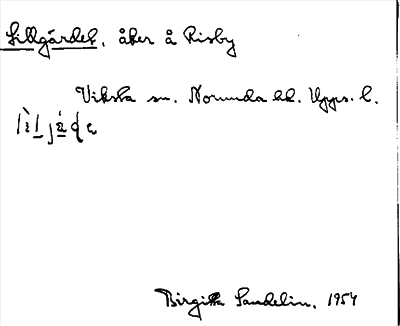 Lillgärdet, åker å Risby
Viksta sn. Norunda hd. Upps. l.
Birgitta Sundelin, 1954